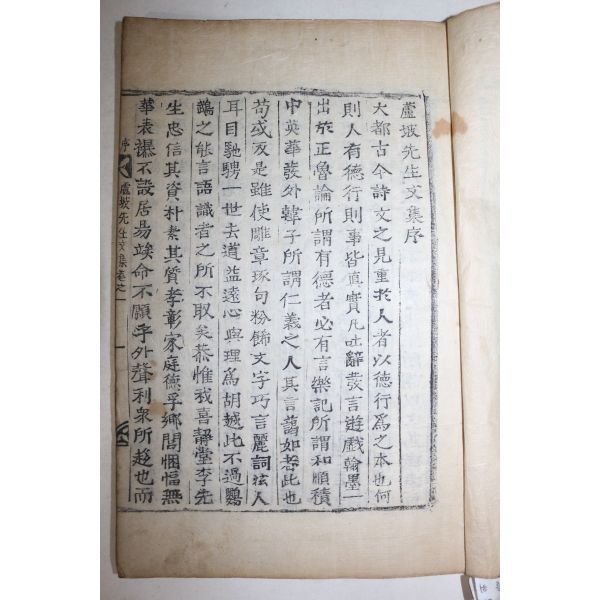 蘆坡先生文集序
大都古今詩文之見重於人者以德行爲之本也何
則人有德行則事皆眞實凡吐辭發言遊戲翰墨一
出於正魯論所謂有德者必有言樂記所謂和順積
中英華發外韓子所謂仁義之人其言藹如者此也
苟或反是雖使雕章琢句粉餙文字巧言麗詞法人
耳目馳騁一世去道益遠心與理爲胡越此不過鸚
鵡之能言語識者之所不取矣恭惟我喜靜堂李先
生忠信其資朴素其質孝彰家庭德孚鄕閭悃愊無
華表襮不設居易俟命不願乎外聲利衆所趍也而
序 蘆坡先生文集卷之一 一